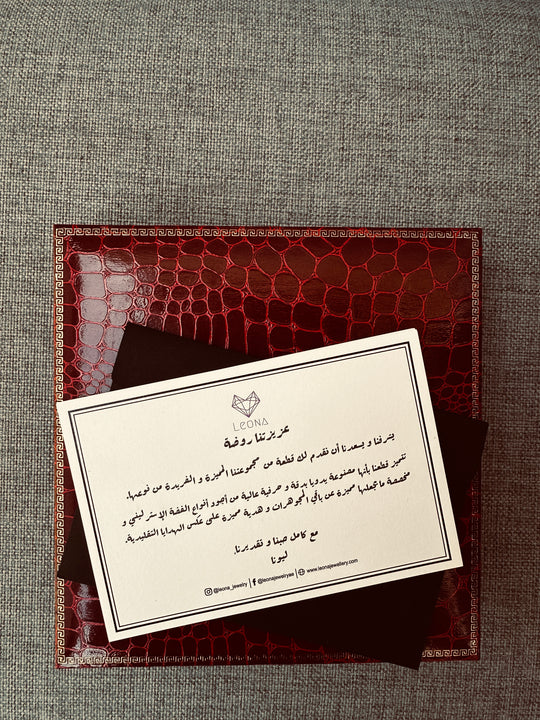 LEONA
عزيزتنا روضة
يشرفنا و يسعدنا أن نقدم لك قطعة من مجموعتنا المميزة و الفريدة من نوعها.
تتميز قطعنا بأنها مصنوعة يدويا بدقة و حرفية عالية من أجود أنواع الفضة الإسترليني و
مخصصة ما يجعلها مميزة عن باقي المجوهرات و هدية مميزة على عكس الهدايا التقليدية.
مع كامل حبنا و تقديرنا.
ليونا
@leona_jewelry | @leonajewelryae | www.leonajewellery.com